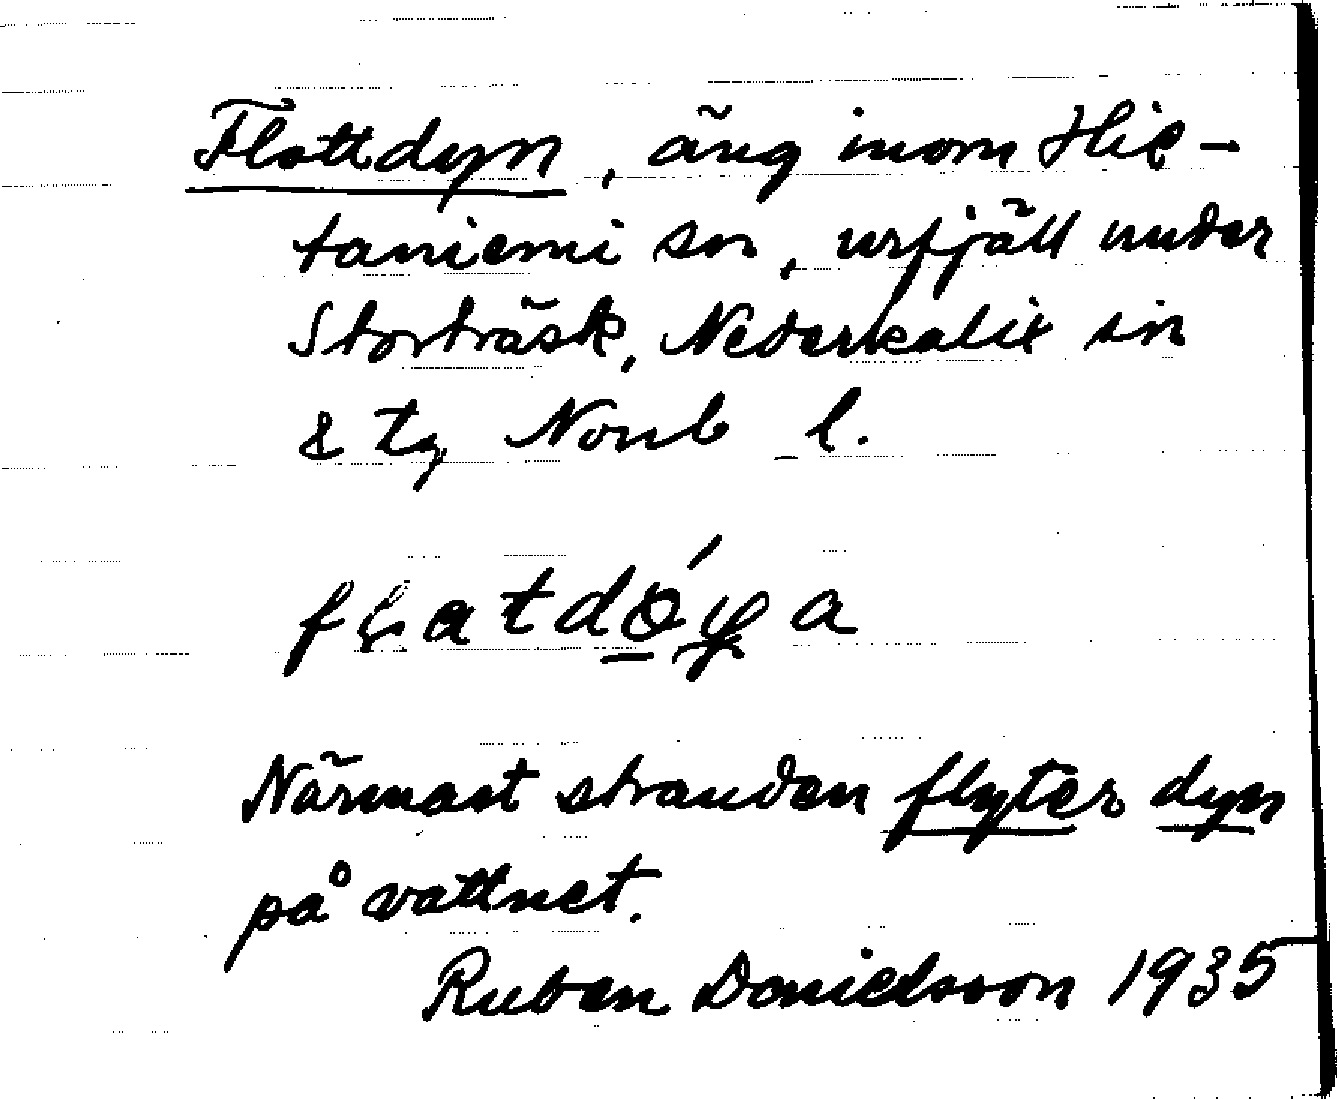 Flottdyn, äng inom Hie-
taniemi sn, urfjäll under
Storträsk, Nederkalix sn
& tg Norrb l.
flatdǿya
Närmast stranden flyter dyn
på vattnet.
Ruben Danielsson 1935